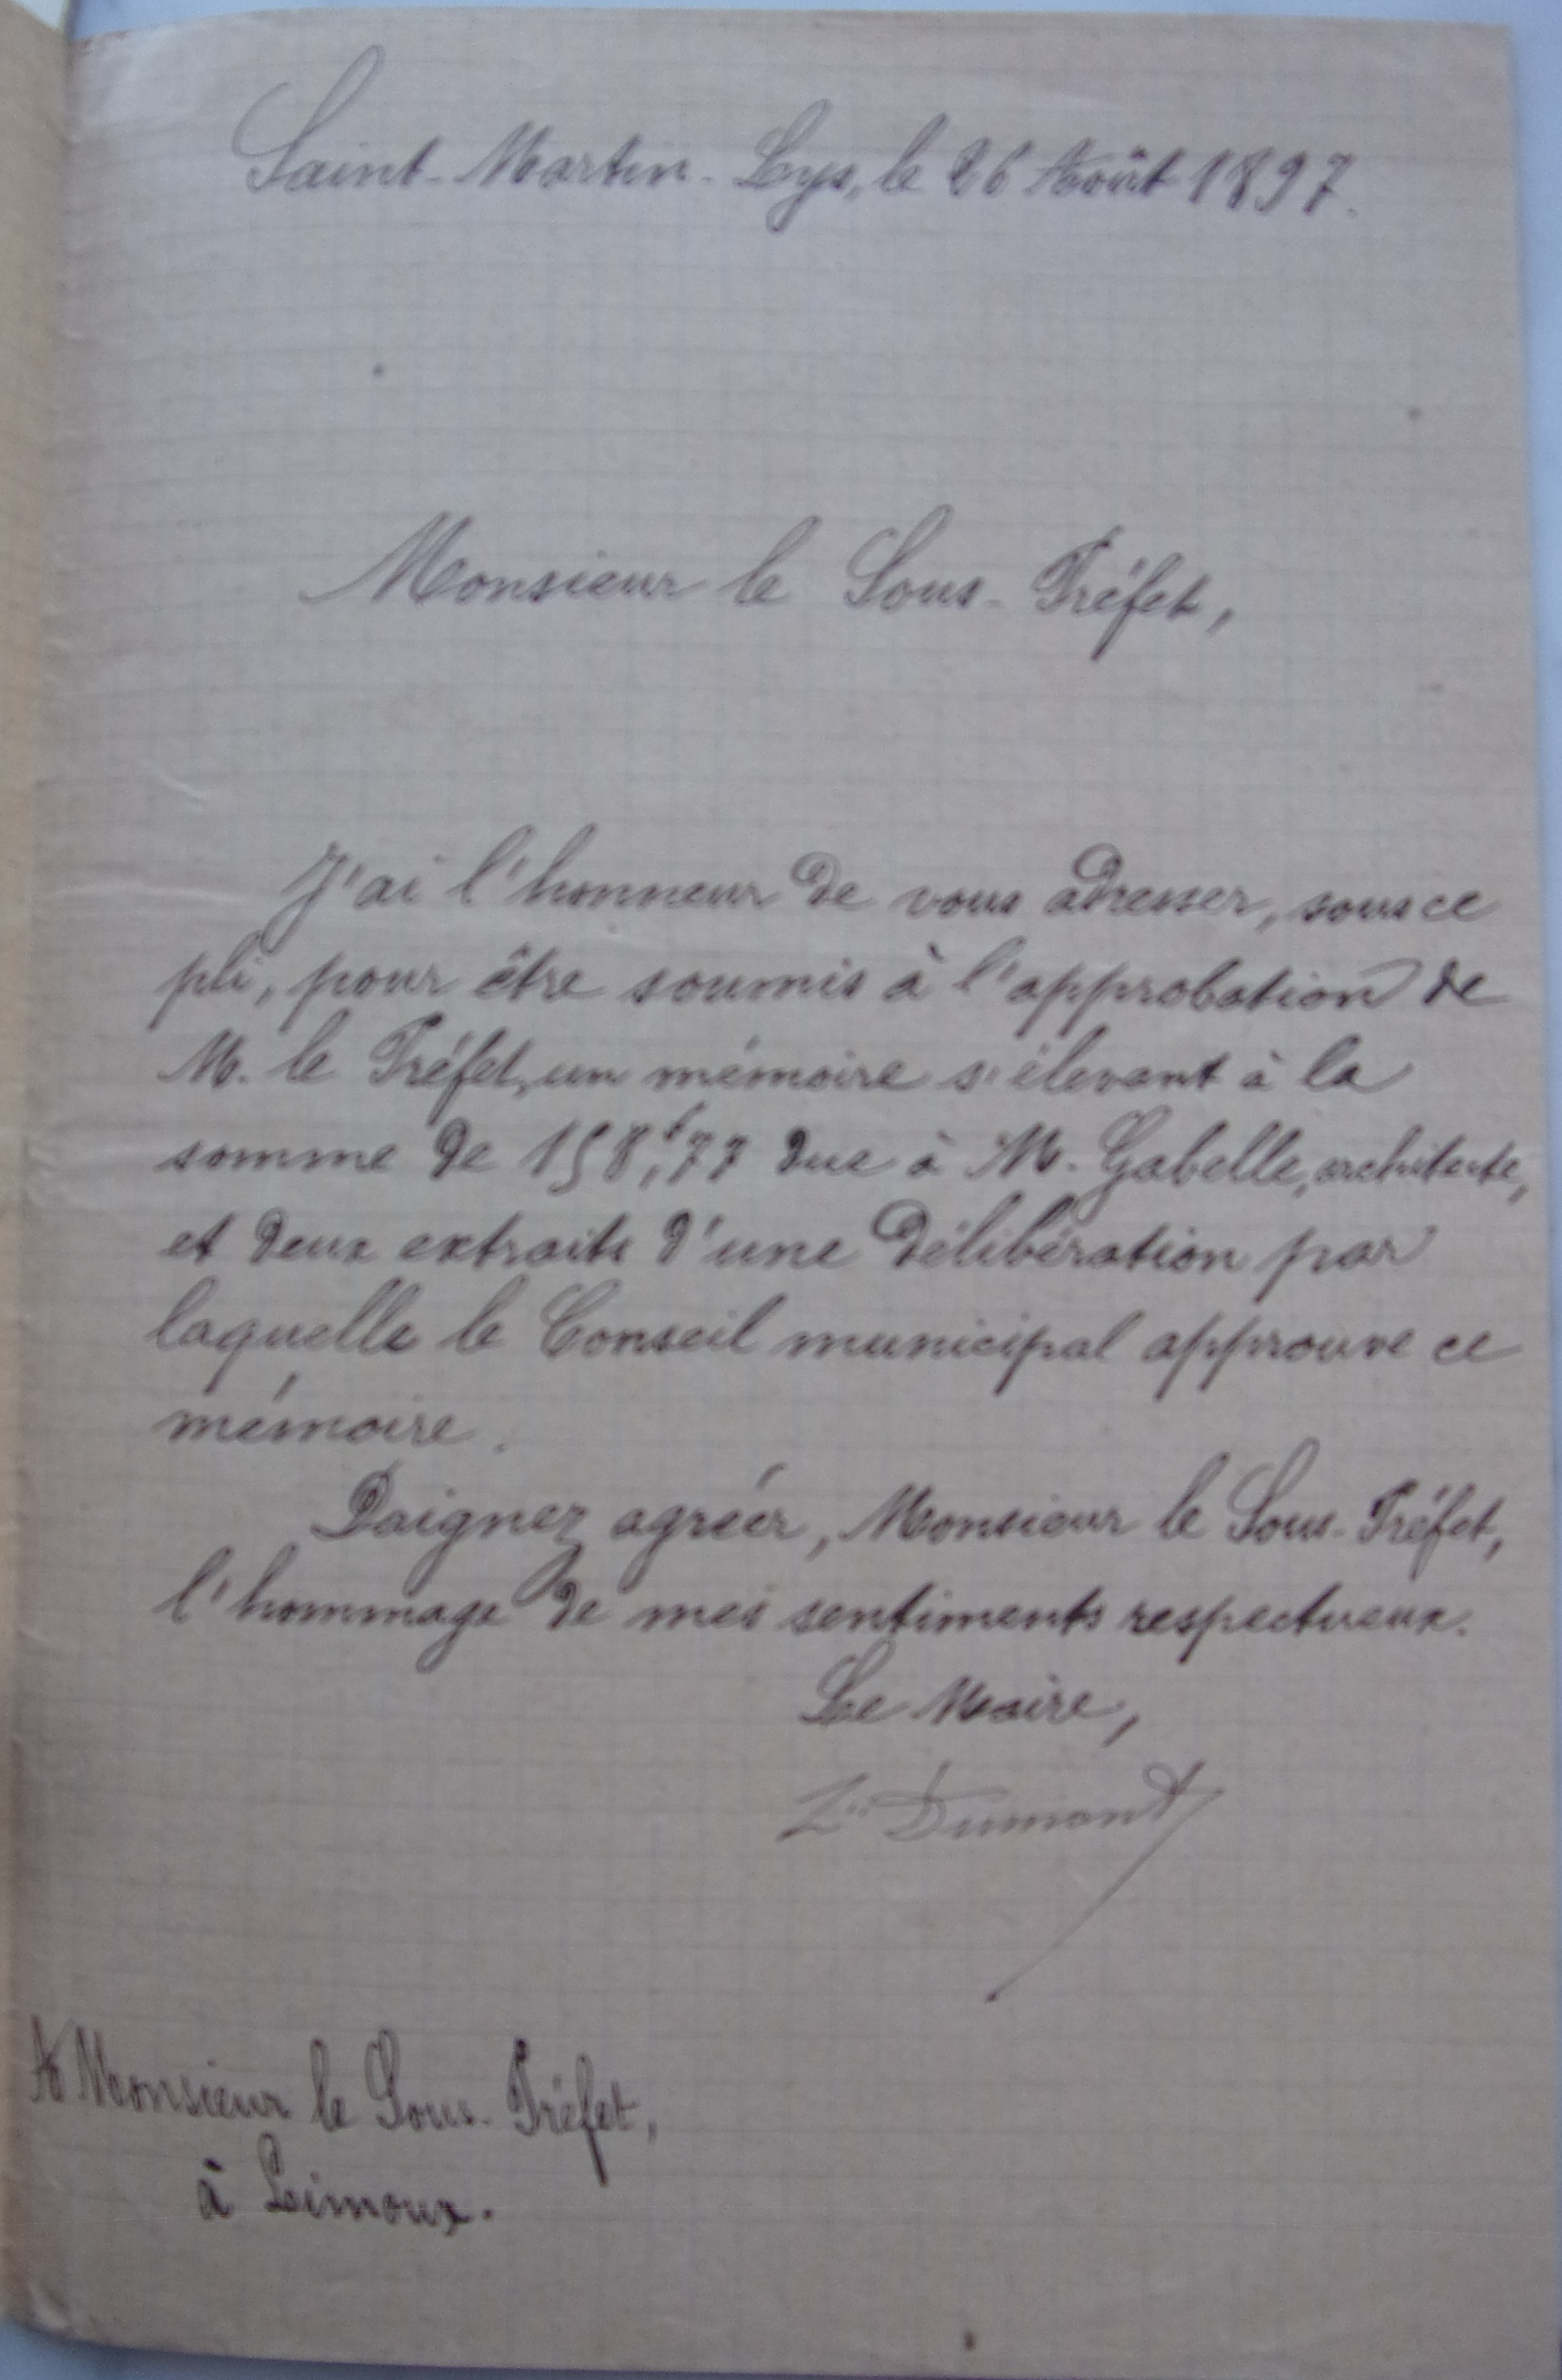 Saint-Martin-Lys, le 26 Août 1897.
Monsieur le Sous-Préfet,
J'ai l'honneur de vous adresser, sous ce
pli, pour être soumis à l'approbation de
M. le Préfet, un mémoire s'élevant à la
somme de 158,f77 due à M. Gabelle, architecte,
et deux extraits d'une délibération par
laquelle le Conseil municipal approuve ce
mémoire.
Daignez agréer, Monsieur le Sous-Préfet,
l'hommage de mes sentiments respectueux.
Le Maire,
Dumont
A Monsieur le Sous-Préfet,
à Limoux.